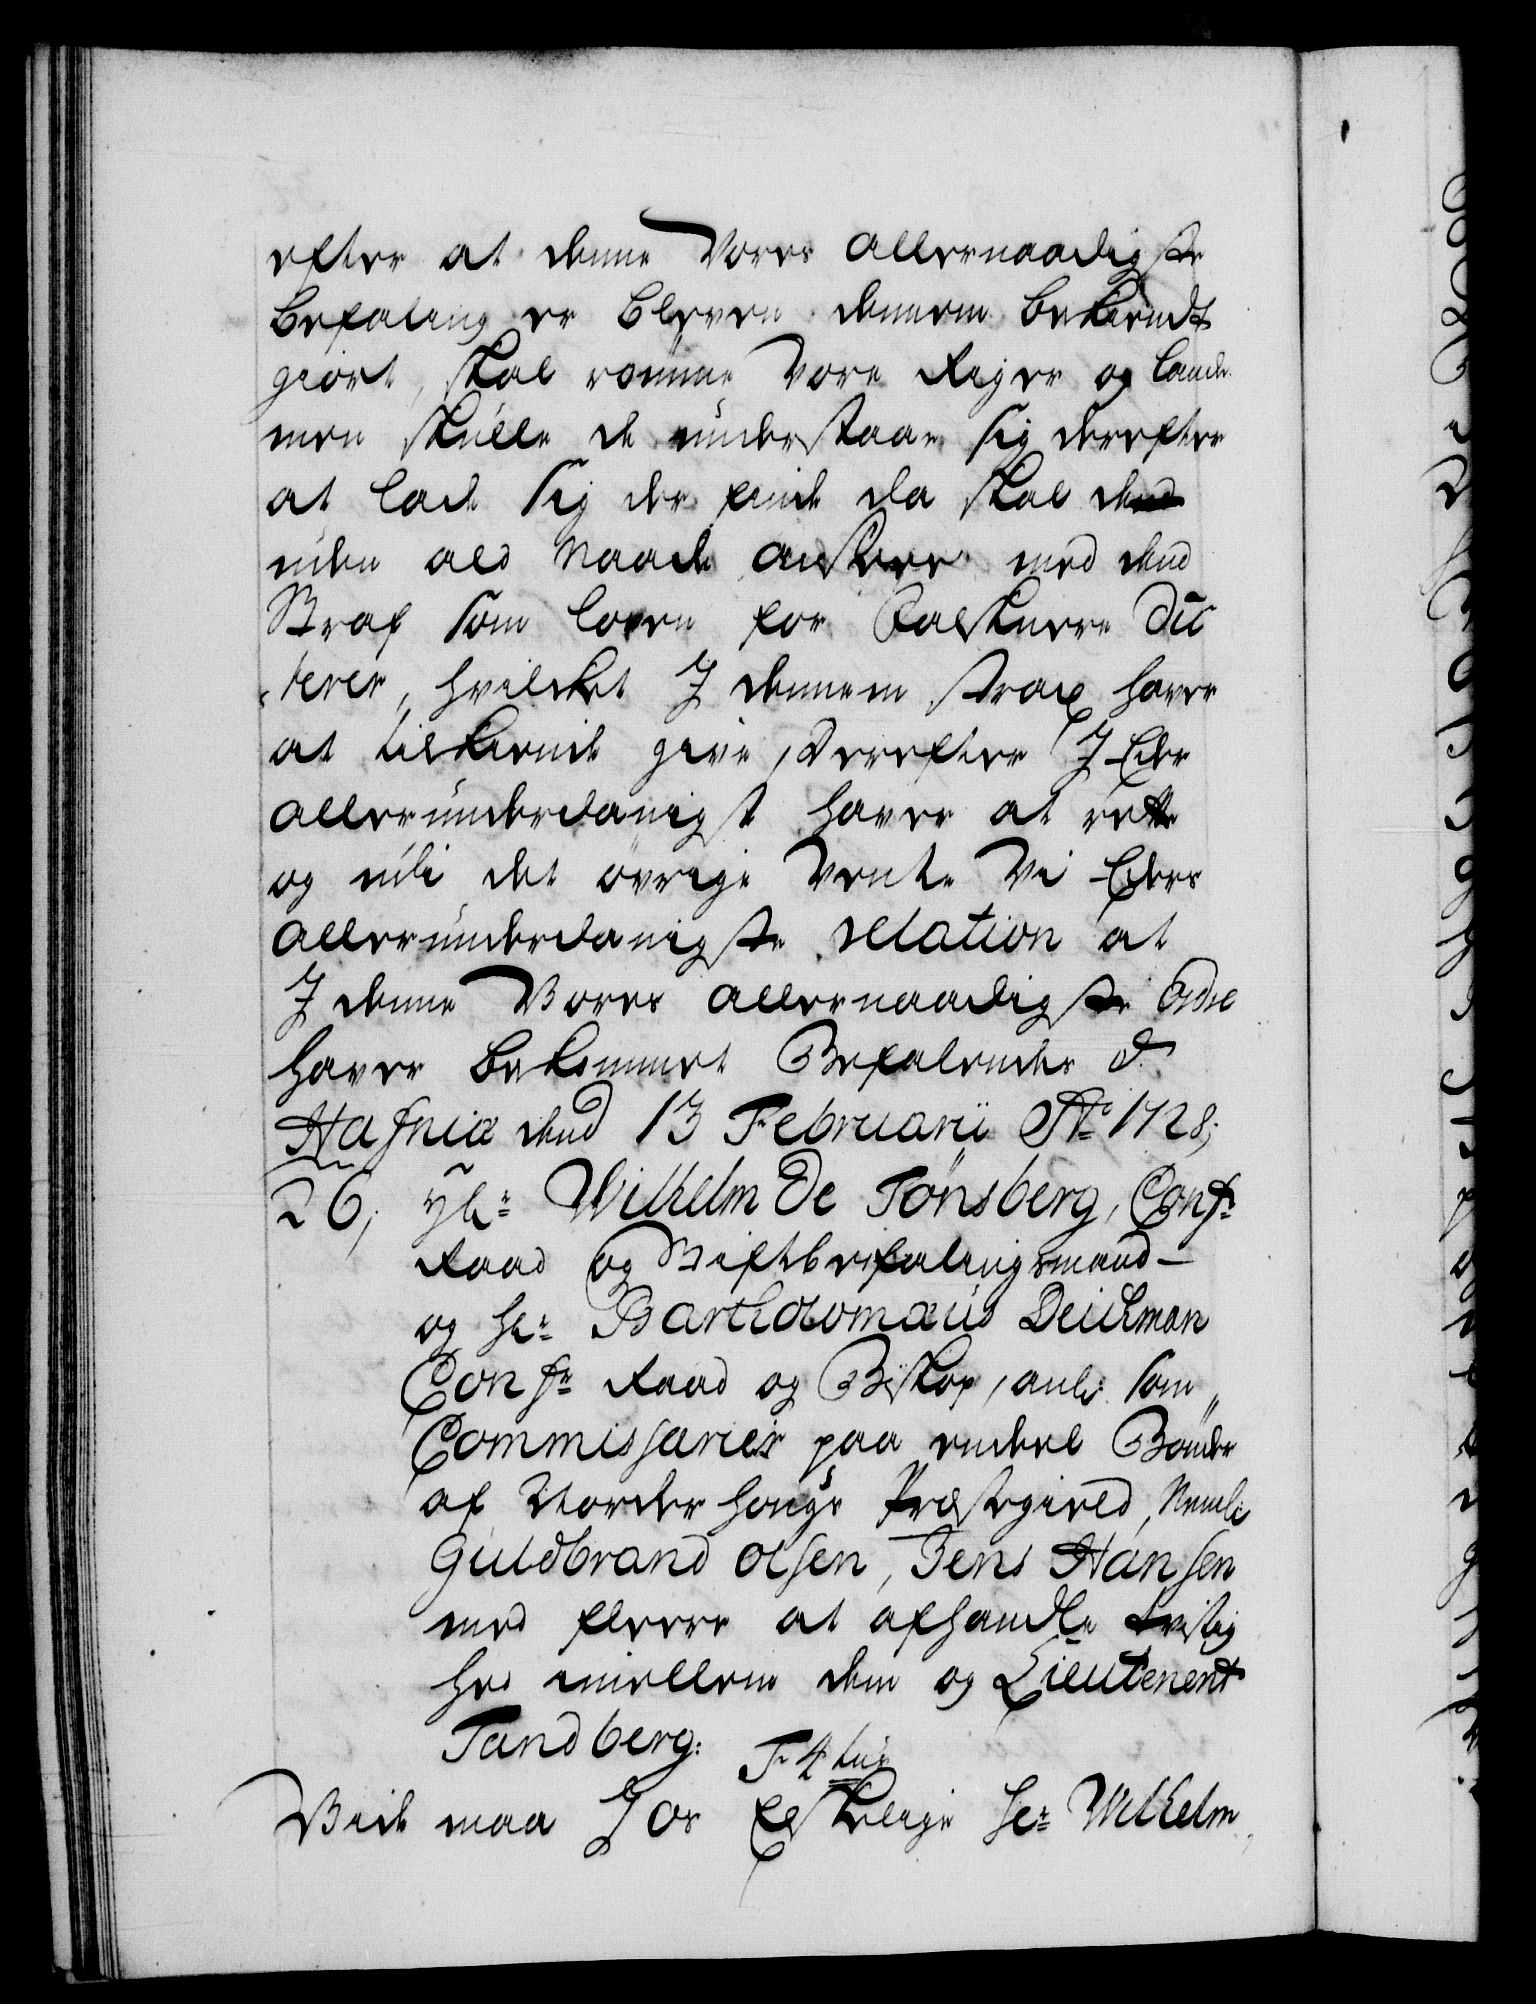 efter at denne Vores allernaadigste
befaling er bleven dennem bekiendt
giort, skal römme Vore Riger og Lande
men skulle de understaae sig derefter
at lade sig der finde da skal de
uden ald Naade ansees med dend
Straf som loven for
terer, hvilcket J dennem strax haver
at tilkiende give, Derefter J Eder
allerunderdanigst haver at rette
og udi det övrige Vente Vi Eders
allerunderdanigste relation at
J denne Vores allernaadigste Ordre
haver bekommet Befalendes &
Hafniæ dend 13 Februarii Ao 1728;
26, Hr: Wilhelm De Tönsberg, Conf:
Raad og Stiftbefalingsmand
og Hr: Bartholomæus Deichman
Conf: Raad og Biskop, anl: som
Commissarier paa endeel Bönder
af Norderhougs Præstegield, Nemlig
Guldbrand Olsen, Jens Hansen
med fleere at afhandle tvistig
hed imellem dem og Lieutenent
Tandberg: F 4tus
Vide maa J os Elskelige Hr: Wilhelm